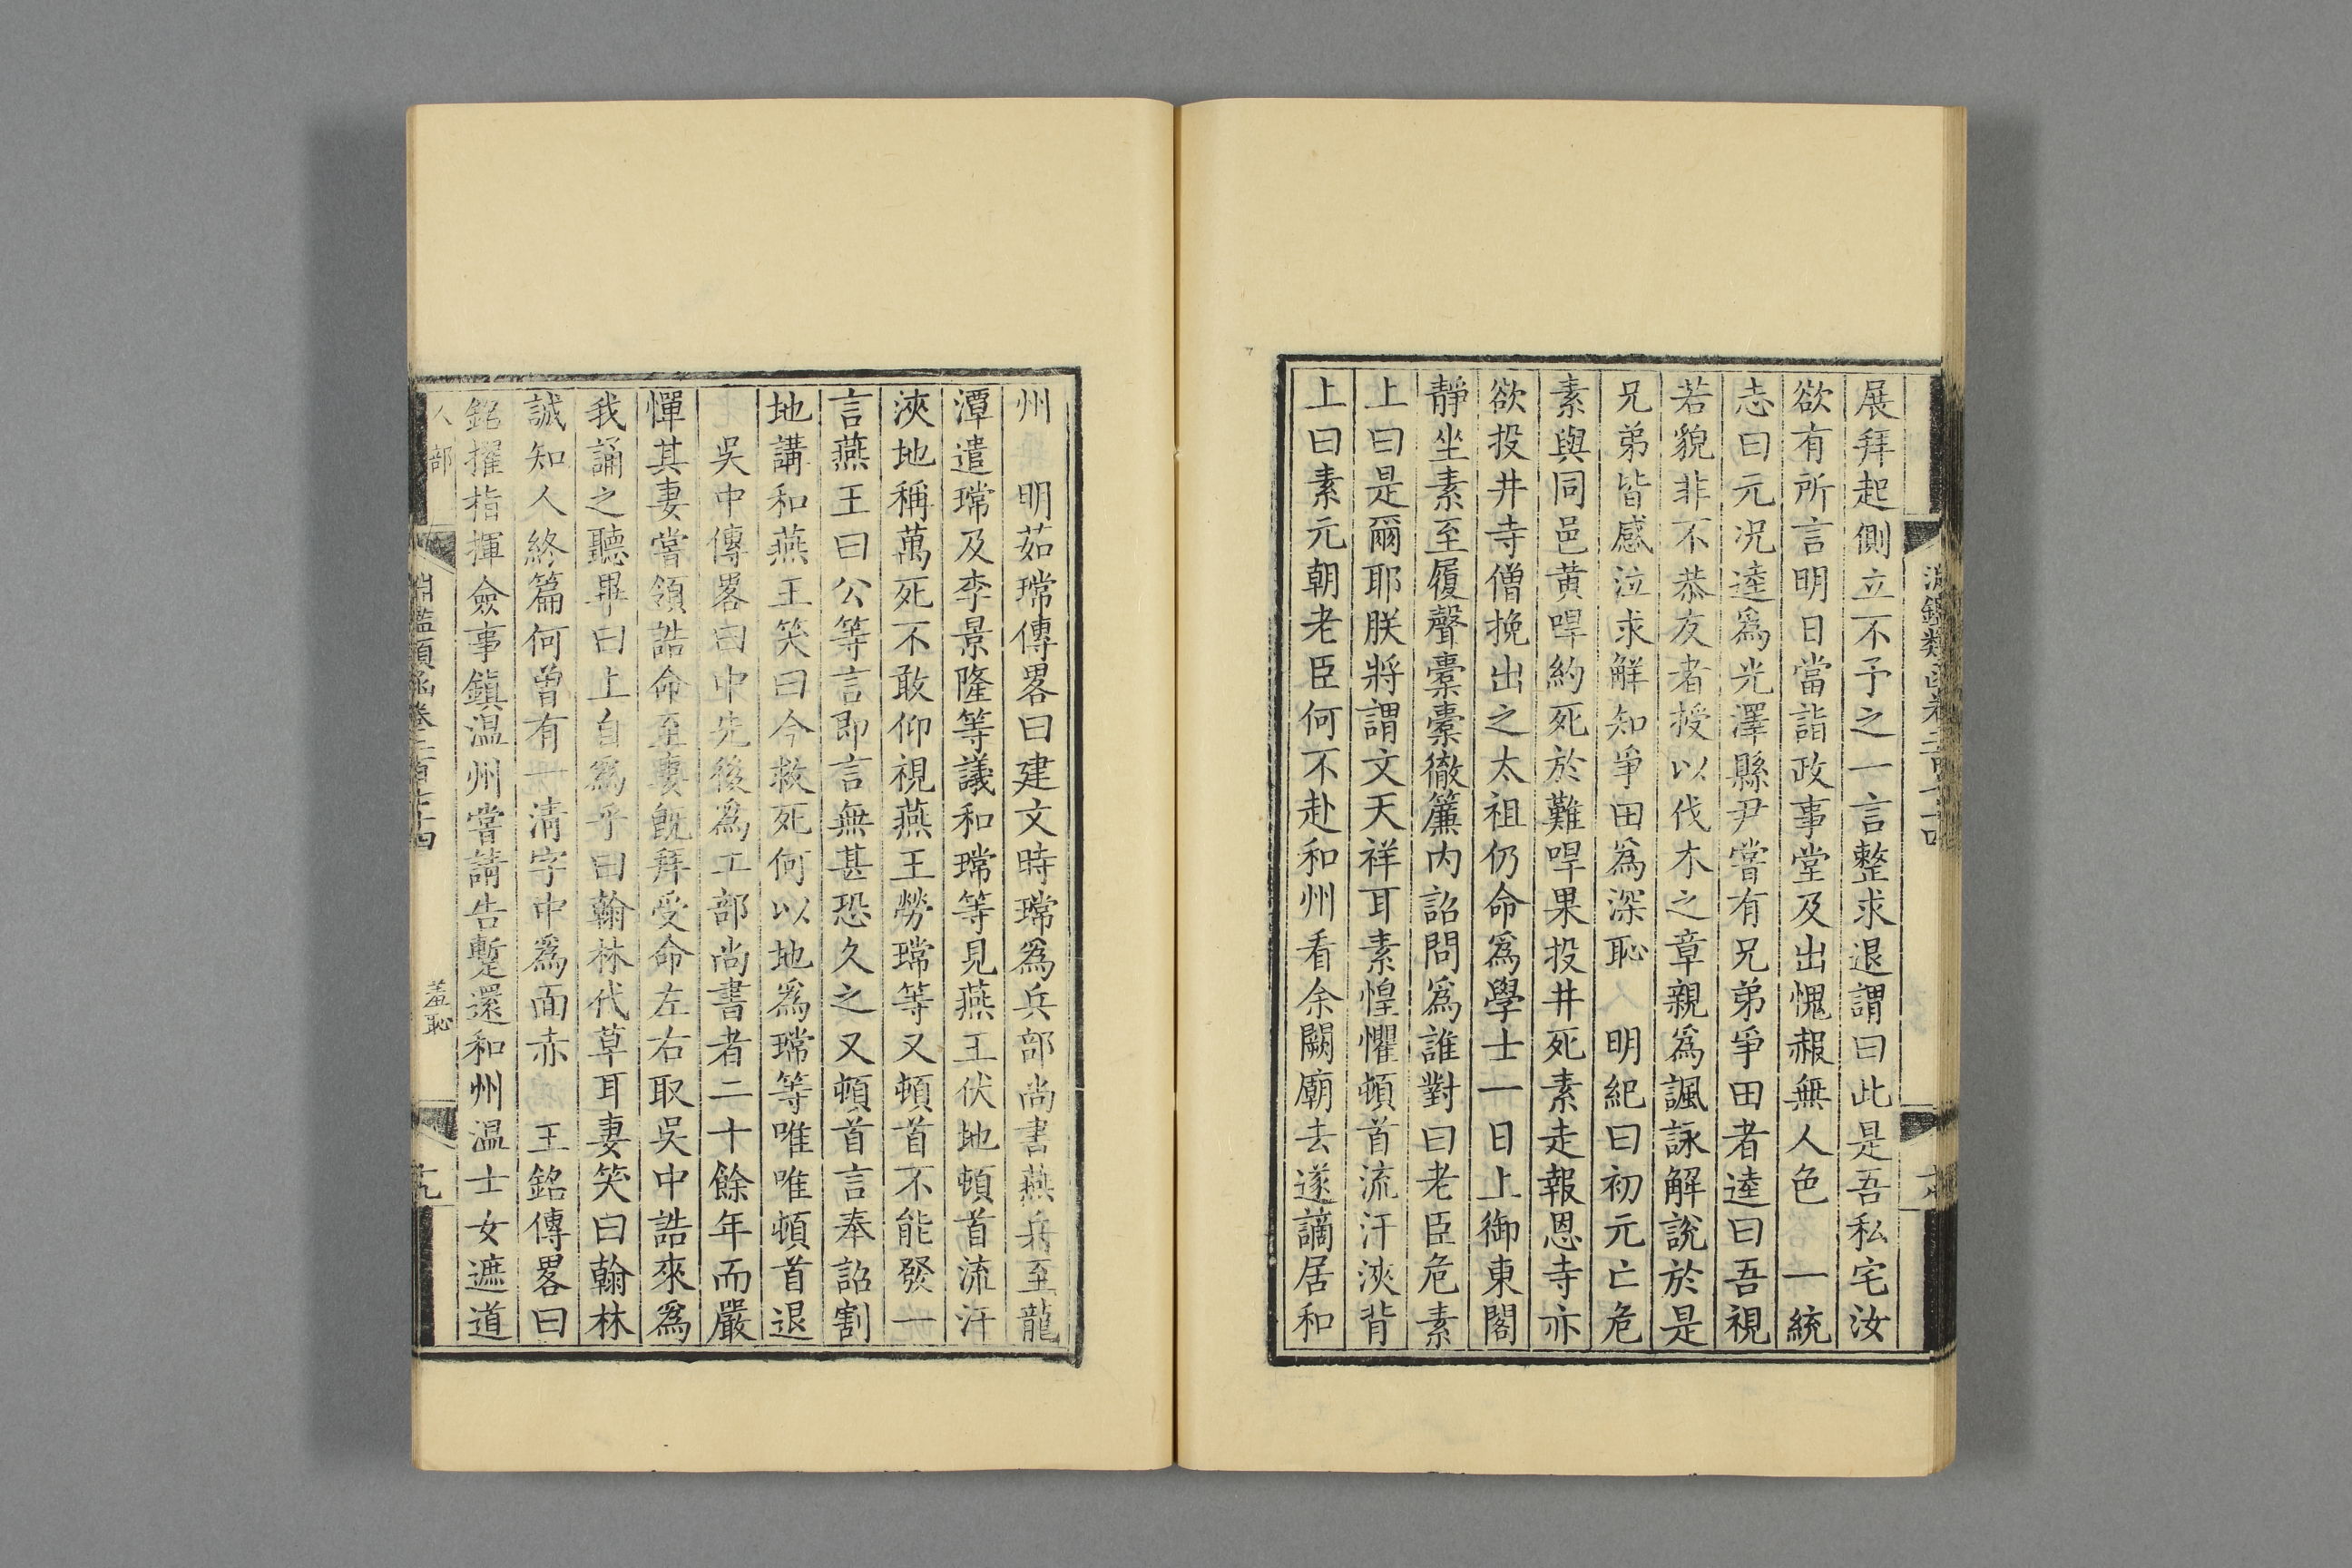 展拜起側立不予之一言整求退謂曰此是吾私宅汝
欲有所言明日當詣政事堂及出愧赧無人色　一統
志曰元況逵爲光澤縣尹嘗有兄弟爭田者逵曰吾視
若貌非不恭友者授以伐木之章親爲諷詠解說於是
兄弟皆感泣求解知爭田爲深恥　明紀曰初元亡危
素與同邑黄㫒約死於難㫒果投井死素走報恩寺亦
欲投井寺僧挽出之太祖仍命爲學士一日上御東閣
靜坐素至履聲橐橐徹簾内詔問爲誰對曰老臣危素
上曰是爾耶朕將謂文天祥耳素惶懼頓首流汗浹背
上曰素元朝老臣何不赴和州看余闕廟去遂謫居和
州　明茹瑺傳畧曰建文時瑺爲兵部尚書燕兵至龍
潭遣瑺及李景隆等議和瑺等見燕王伏地頓首流汗
浹地稱萬死不敢仰視燕王勞瑺等又頓首不能發一
言燕王曰公等言即言無甚恐久之又頓首言奉詔割
地講和燕王笑曰今救死何以地爲瑺等唯唯頓首退
吳中傳畧曰中先後爲工部尚書者二十餘年而嚴
憚其妻嘗領誥命至妻既拜受命左右取吳中誥來爲
我誦之聽畢曰上自爲乎曰翰林代草耳妻笑曰翰林
誠知人終篇何曾有一清字中爲面赤　王銘傳畧曰
銘擢指揮僉事鎭温州嘗請告暫還和州温士女遮道
人部
淵鑑類函卷三百十四
羞恥
十九